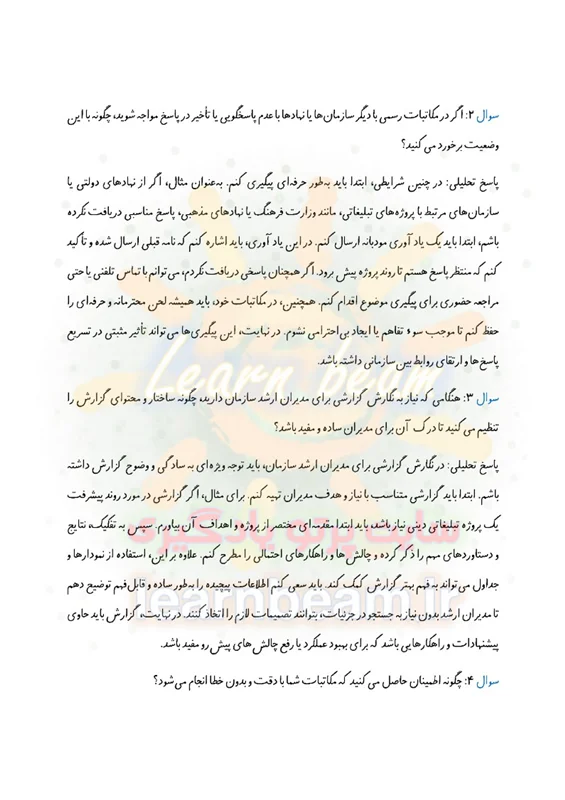 سوال ۲: اگر در مکاتبات رسمی با دیگر سازمان‌ها یا نهادها با عدم پاسخگویی یا تأخیر در پاسخ مواجه شوید، چگونه با این
وضعیت برخورد می کنید؟
پاسخ تحلیلی: در چنین شرایطی، ابتدا باید به‌طور حرفه‌ای پیگیری کنم. به‌عنوان مثال، اگر از نهادهای دولتی یا
سازمان‌های مرتبط با پروژه‌های تبلیغاتی، مانند وزارت فرهنگ یا نهادهای مذهبی، پاسخ مناسبی دریافت نکرده
باشم، ابتدا باید یک یاد آوری مودبانه ارسال کنم. در این یاد آوری، باید اشاره کنم که نامه قبلی ارسال شده و تأکید
کنم که منتظر پاسخ هستم تا روند پروژه پیش برود. اگر همچنان پاسخی دریافت نکردم، می‌توانم با تماس تلفنی یا حتی
مراجعه حضوری برای پیگیری موضوع اقدام کنم. همچنین، در مکاتبات خود، باید همیشه لحن محترمانه و حرفه‌ای را
حفظ کنم تا موجب سوء تفاهم یا ایجاد بی‌احترامی نشوم. در نهایت، این پیگیری‌ها می‌تواند تأثیر مثبتی در تسریع
پاسخ‌ها و ارتقای روابط بین سازمانی داشته باشد.
Learn beam
سوال ۳: هنگامی که نیاز به نگارش گزارشی برای مدیران ارشد سازمان دارید، چگونه ساختار و محتوای گزارش را
تنظیم می کنید تا درک آن برای مدیران ساده و مفید باشد؟
پاسخ تحلیلی: در نگارش گزارشی برای مدیران ارشد سازمان، باید توجه ویژه‌ای به سادگی و وضوح گزارش داشته
باشم. ابتدا باید گزارشی متناسب با نیاز و هدف مدیران تهیه کنم. برای مثال، اگر گزارشی در مورد روند پیشرفت
یک پروژه تبلیغاتی دینی نیاز باشد، باید ابتدا مقدمه‌ای مختصر از پروژه و اهداف آن بیاورم. سپس به تفکیک، نتایج
سایت پرتو یادگیری
و دستاوردهای مهم را ذکر کرده و چالش‌ها و راهکارهای احتمالی را مطرح کنم. علاوه بر این، استفاده از نمودارها و
جداول می‌تواند به فهم بهتر گزارش کمک کند. باید سعی کنم اطلاعات پیچیده را به‌طور ساده و قابل‌فهم توضیح دهم
learnbeam.ir
تا مدیران ارشد بدون نیاز به جستجو در جزئیات، بتوانند تصمیمات لازم را اتخاذ کنند. در نهایت، گزارش باید حاوی
پیشنهادات و راهکارهایی باشد که برای بهبود عملکرد یا رفع چالش های پیش رو مفید باشد.
سوال ۴: چگونه اطمینان حاصل می کنید که مکاتبات شما با دقت و بدون خطا انجام می‌شود؟